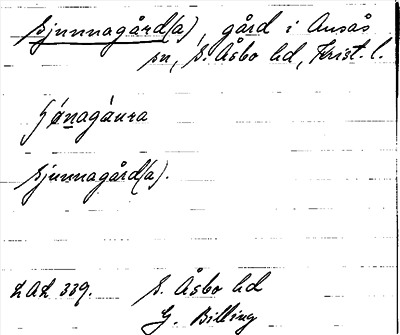 Sjunnagård(a), gård i Ausås
sn, S. Åsbo hd, Krist. l.
ʃǿnagåura
Sjunnagård(a).
LAL 339. S. Åsbo hd
G. Billing